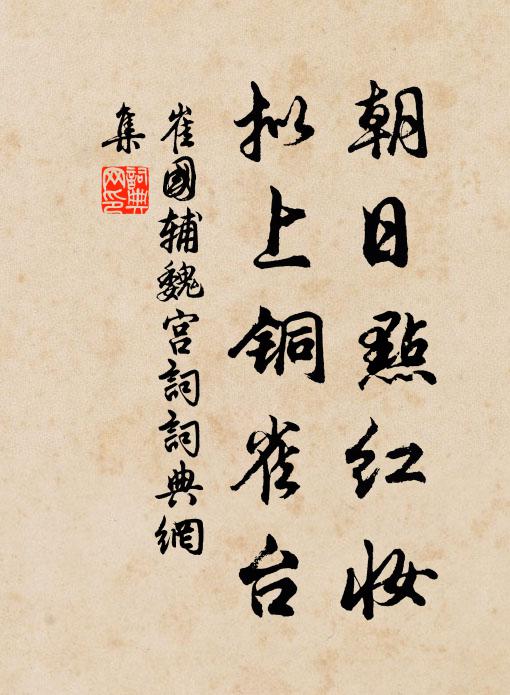 朝日點红妆
拟上铜雀台
崔國辅魏宫詞詞典網
集
詞典
网印